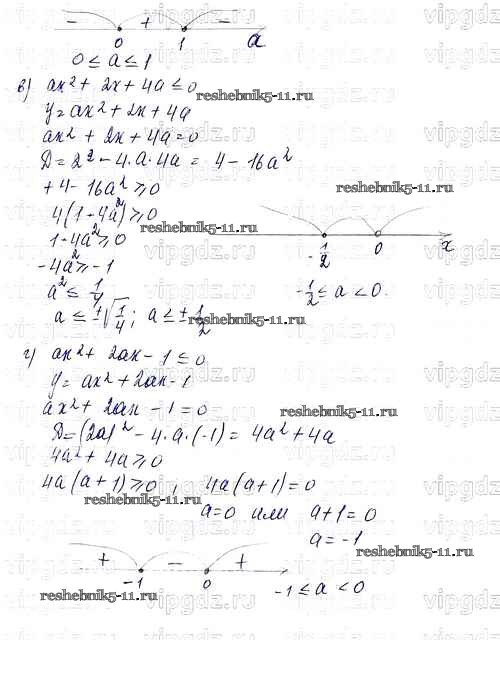 - + -
0 1 a
0 ≤ a ≤ 1
в) ax² + 2x + 4a ≤ 0
reshebnik5-11.ru
y = ax² + 2x + 4a
ax² + 2x + 4a = 0
D = 2² - 4·a·4a = 4 - 16a²
+4 - 16a² ≥ 0
reshebnik5-11.ru
4(1 - 4a²) ≥ 0
reshebnik5-11.ru
1 - 4a² ≥ 0
-1/2 0 x
-4a² ≥ -1
a² ≤ 1/4
-1/2 ≤ a < 0.
a ≤ ±√1/4; a ≤ ±1/2
reshebnik5-11.ru
г) ax² + 2ax - 1 ≤ 0
y = ax² + 2ax - 1
ax² + 2ax - 1 = 0
reshebnik5-11.ru
D = (2a)² - 4·a·(-1) = 4a² + 4a
4a² + 4a ≥ 0
4a(a+1) ≥ 0, 4a(a+1) = 0
reshebnik5-11.ru
a = 0 или a + 1 = 0
a = -1
reshebnik5-11.ru
+ - +
-1 0
-1 ≤ a < 0
reshebnik5-11.ru
vipgdz.ru